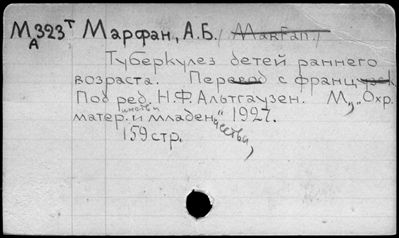 М323Т Марфан, А.Б. /Марfan./
А
Туберкулез детей раннего
возраста. Перевод с француз.
Под ред. Н.Ф. Альтгаузен. М., „Охр.
матер.инства и младен"чества, 1927.
159 стр.